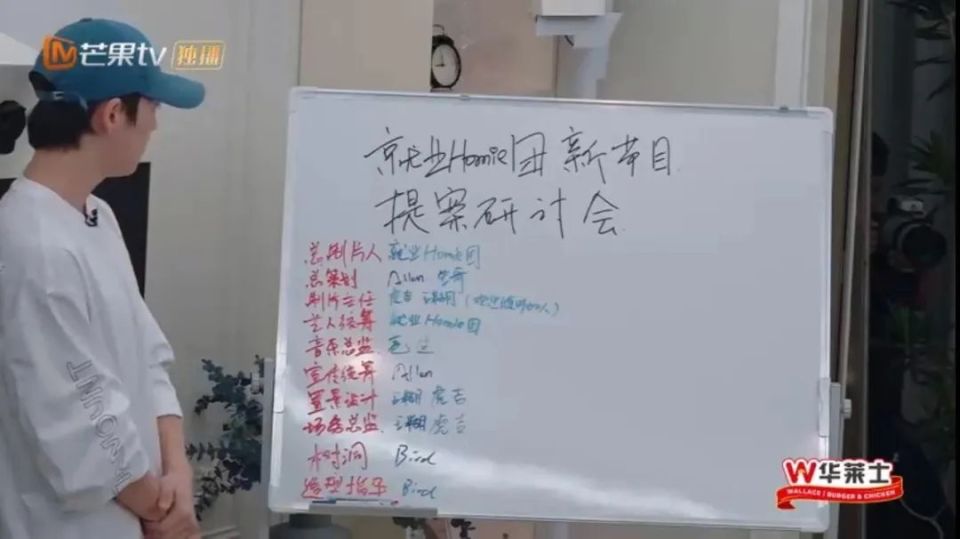 芒果tv 独播
就业Homie团 新节目
提案研讨会
总制片人 就业Homie团
总策划 Allan
制片主任 虎吉
艺人统筹 就业Homie团
音乐总监
宣传统筹 Allan
置景设计 虎吉
场务总监 虎吉
树洞 Bird
造型指导 Bird
MOUNT
W华莱士
WALLACE | BURGER & CHICKEN